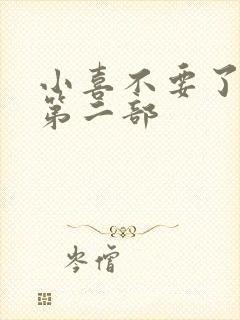 小喜不要了
第二部
岑僧